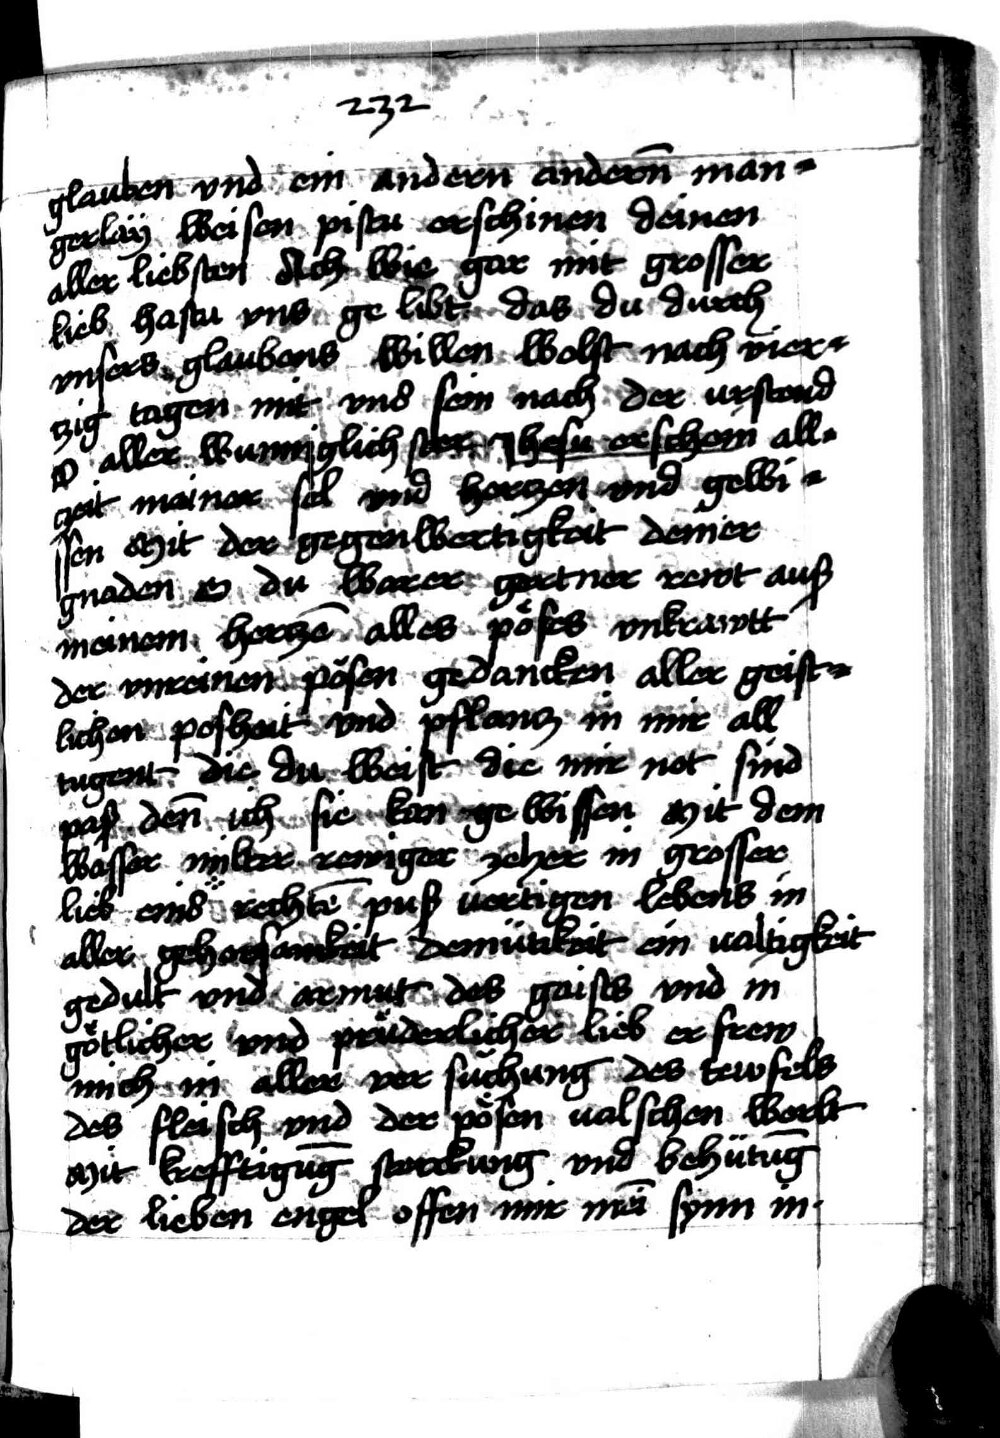 232
glauben vnd ein andern andern̄ man=
gerlaÿ weisen pistu erschinen deinen
aller liebsten Ach wie gar mit grosser
lieb hastu vns ge libt das du durch
vnsers glaubens willen wolst nach vier=
zig tagen mit vns sein nach der urstend
O aller wunniglich ster Jhesu erschein all=
zeit meiner sel vnd hertzen vnd gewi=
ssen Mit der gegenwertigkeit deiner
gnaden O du warer gertner rewt auß
meinem hertzē alles pöses vnkrawtt
der vnreinen pösen gedancken aller geist=
lichen posheit vnd pflantz in mir all
tugent die du weist die mir not sind
paß den̄ ich sie kan ge wissen Mit dem
wasser milter rewiger zeher in grosser
lieb eins rechtē puß uertigen lebens in
aller gehorsamkeit demütikeit ein ualtigkeit
gedult vnd armut des geists vnd in
götlicher vnd prüderlicher lieb er frew
mich in aller ver suchung des tewfels
des fleisch vnd der pösen ualschen werlt
Mit krefftigūg sterckung vnd behütūg
der lieben engel offen mir mēi synn in